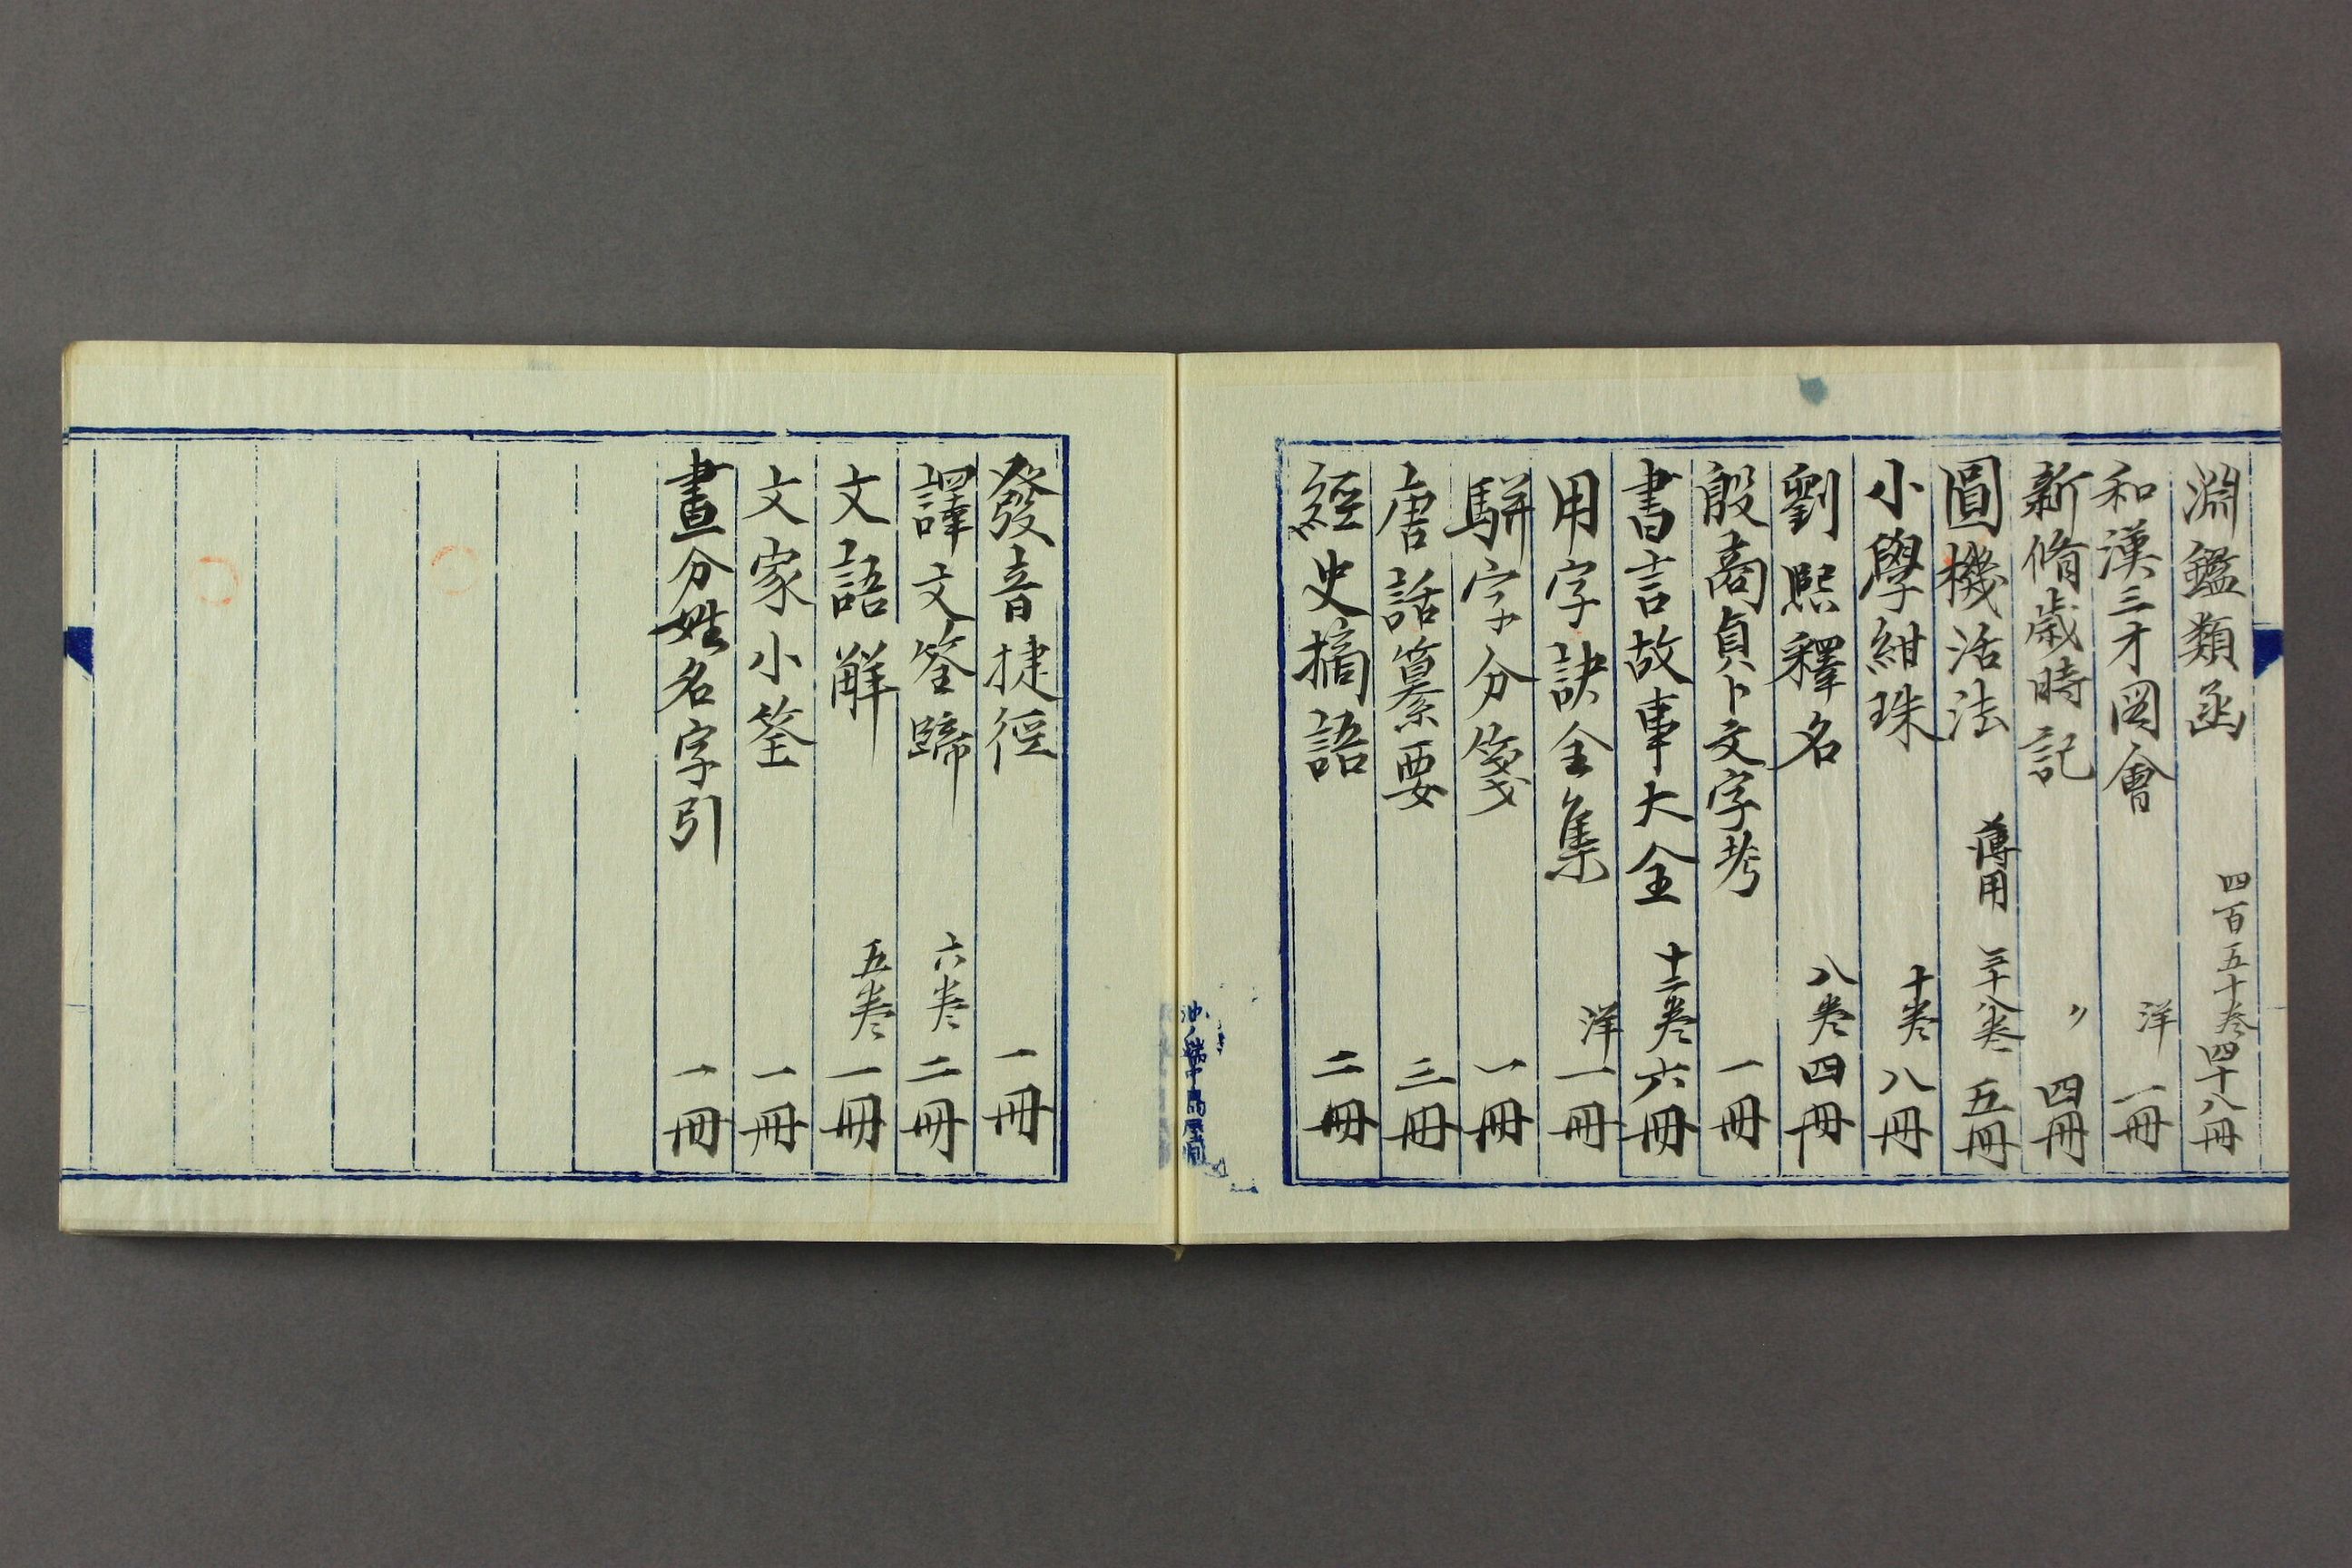 淵鑑類函 四百五十巻 四十八冊
和漢三才図會 洋 一冊
新脩歳時記 〃 四冊
圓機活法 薄用 三十八巻 五冊
小學紺珠 十巻 八冊
劉熙釋名 八巻 四冊
殷商貞卜文字考 一冊
書言故事大全 十二巻 六冊
用字訣全集 洋 一冊
駢字分箋 一冊
唐話纂要 三冊
經史摘語 二冊
發音捷徑 一冊
譯文筌蹄 六巻 二冊
文語解 五巻 一冊
文家小筌 一冊
畫分姓名字引 一冊